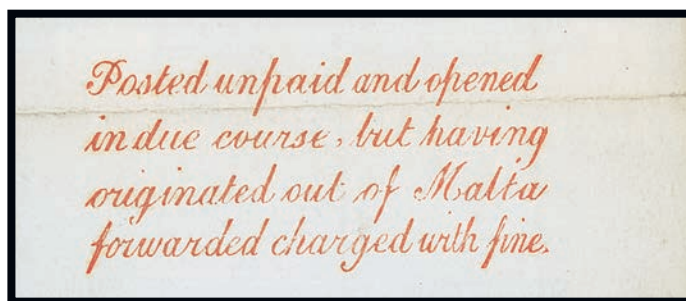 Posted unpaid and opened
in due course, but having
originated out of Malta
forwarded charged with fine.